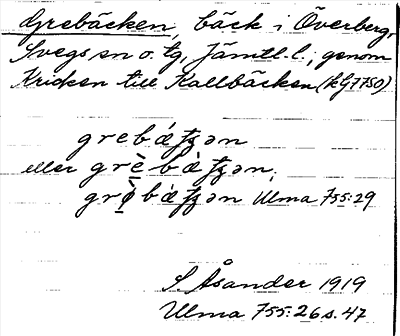 Grebäcken, bäck i Överberg,
Svegs sn o. tg, Jämtl. l.; genom
Kridken till Kallbäcken (kG7750)
grebǽꞎʒən
eller grèbæ̀ꞎʒən;
grø̀bǽꞎʒən Ulma 755:29
S Åsander 1919
Ulma 755:26 s. 47